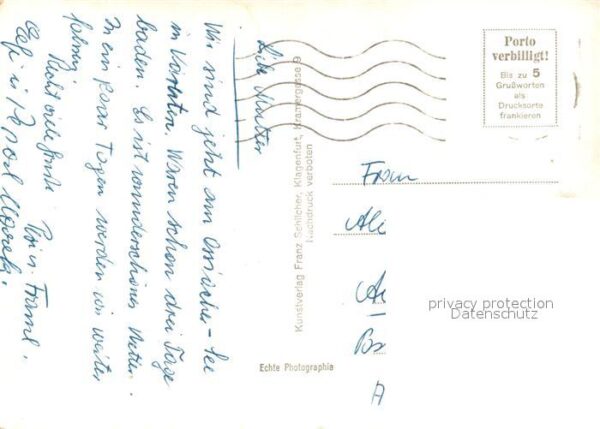 Liebe Mutter
Wir sind jetzt am Ossiacher-See
in Kärnten. Waren schon drei Tage
baden. Es ist wunderschönes Wetter.
In ein paar Tagen werden wir weiter
fahren.
Recht viele Grüße
Kunstverlag Franz Schilcher, Klagenfurt, Kramergasse 9
Nachdruck verboten
Echte Photographie
Porto
verbilligt!
Bis zu 5
Grußworten
als
Drucksorte
frankieren
Frau
privacy protection
Datenschutz